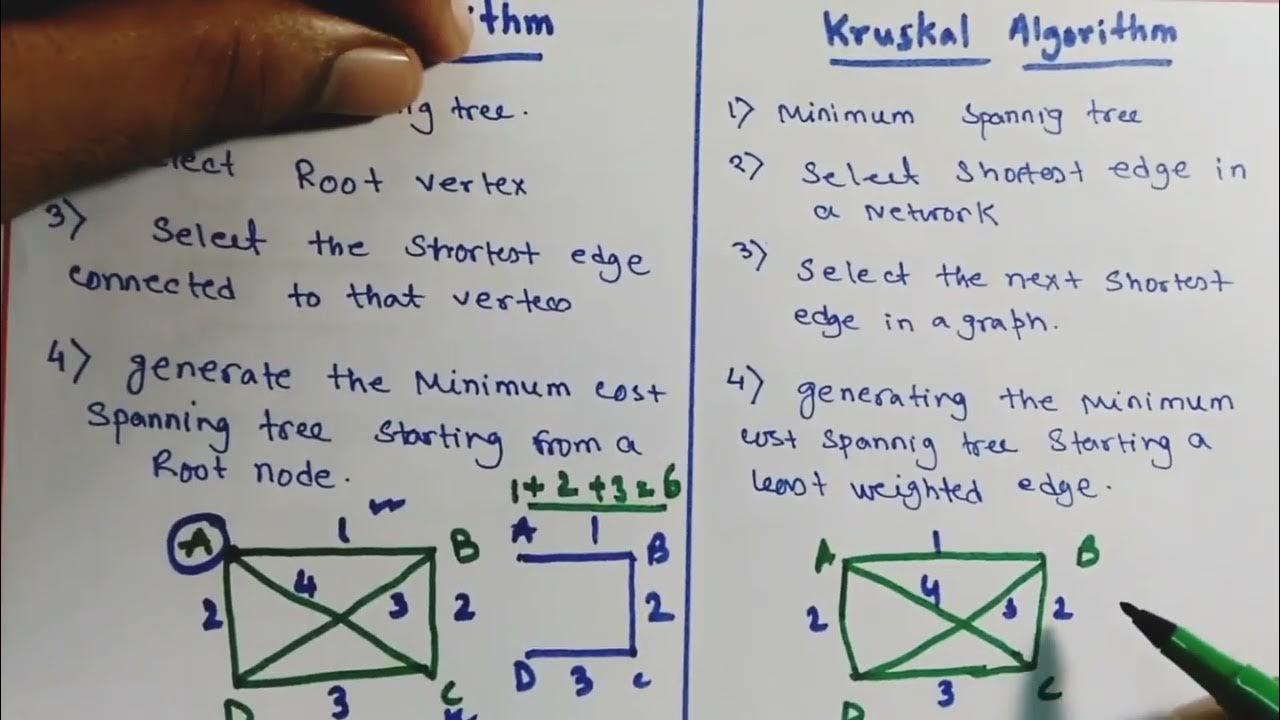 ithm
g tree.
lect Root vertex
3) Select the shortest edge
connected to that vertex
4) generate the Minimum cost
spanning tree starting from a
Root node.
1+2+3=6
A 1 B
2 4 3 2
D 3 C
A 1 B
2
D 3 c
Kruskal Algorithm
1) Minimum Spannig tree
2) Select shortest edge in
a Network
3) Select the next shortest
edge in a graph.
4) generating the Minimum
cost spannig tree starting a
least weighted edge.
A 1 B
2 4 3 2
D 3 C